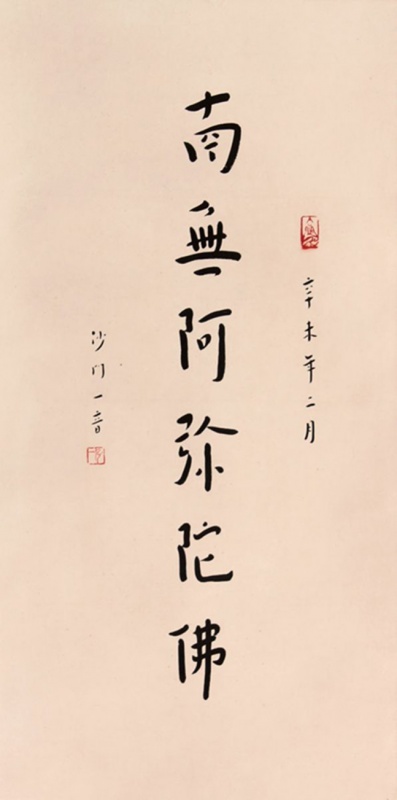 辛未年二月
南無阿弥陀佛
沙门一音